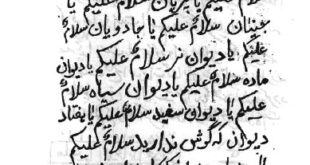 سلامٌ علیکم یا پریان سلامٌ علیکم یا
جنیان سلامٌ علیکم یا جادویان سلامٌ
علیکم یا دیوان نر سلامٌ علیکم یا دیوان
ماده سلامٌ علیکم یا دیوان سیاه سلامٌ
علیکم یا دیوان سفید سلامٌ علیکم یا هفتاد
دیوان که گوش ندارید سلامٌ علیکم